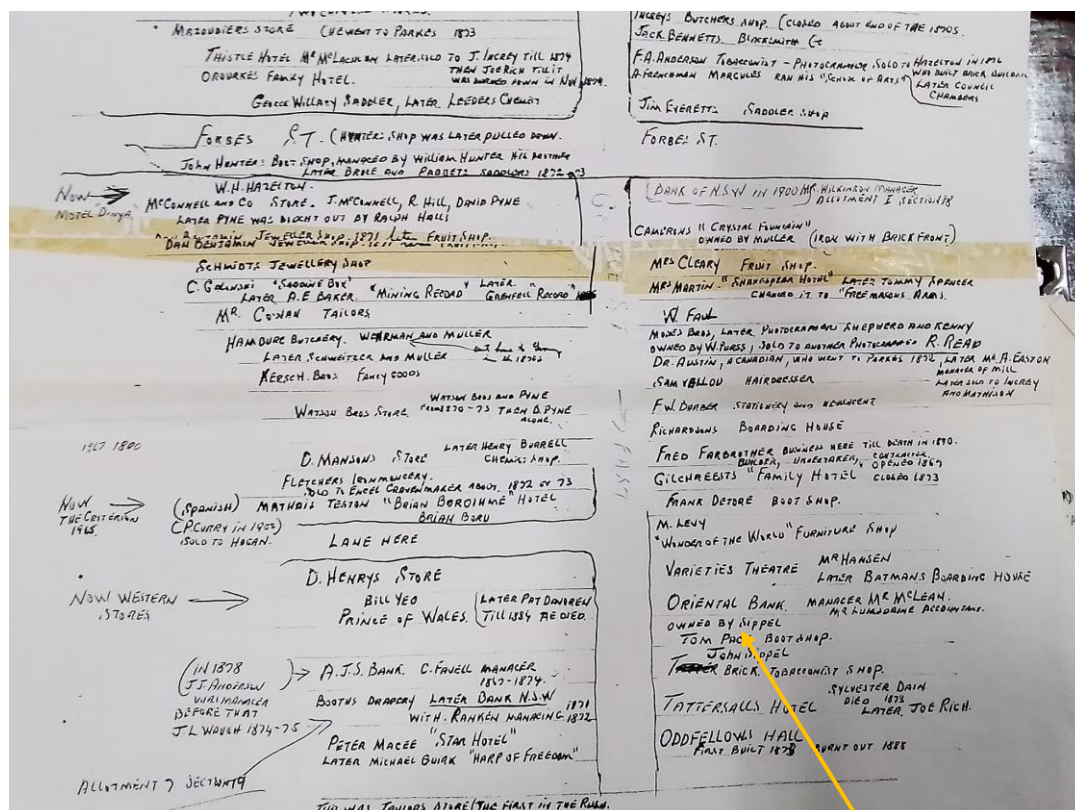 MAZOUDIERS STORE (HE WENT TO PARKES 1873
THISTLE HOTEL MR McLACHLAN LATER SOLD TO J. INCREY TILL 1874
THEN JOE RICH TILL IT
WAS BURNED DOWN IN NOV 1874.
OROURKES FAMILY HOTEL.
GEORGE WILLARY SADDLER, LATER LEEDERS CHEMIST
FORBES ST. (HUNTERS SHOP WAS LATER PULLED DOWN.
JOHN HUNTERS BOOT SHOP, MANAGED BY WILLIAM HUNTER HIS BROTHER
LATER AND SADDLERS 1872-73
W.H. HAZELTON.
NOW
MOTEL
McCONNELL AND CO STORE. J. McCONNELL, R. HILL, DAVID PYNE
LATER PYNE WAS BOUGHT OUT BY RALPH HALLS
DAN BENJAMIN JEWELER SHOP 1871 later FRUIT SHOP.
SCHMIDTS JEWELLERY SHOP
C. "SARDINE BOX" LATER.
LATER A.E. BAKER. "MINING RECORD" GRENFELL "RECORD"
MR. COWAN TAILORS
HAMBURG BUTCHERY. WEHRMAN AND MULLER
LATER SCHWEITZER AND MULLER
in the 1870s
KERSCH. BROS FANCY GOODS
WATSON BROS AND PYNE
WATSON BROS STORE. FROM 1870-73 THEN D. PYNE
ALONE.
1967 1800
LATER HENRY BURRELL
D. MANSONS STORE CHEMIST SHOP.
FLETCHERS IRONMONGERY.
SOLD TO ENGEL ABOUT. 1872 OR 73
NOW
THE CRITERION
1965.
(SPANISH) MATHAIS TESTON "BRIAN BOROIHME" HOTEL
BRIAN BORU
(P. CURRY IN 1900)
SOLD TO HOGAN.
LANE HERE
D. HENRYS STORE
NOW WESTERN
STORES
BILL YEO
PRINCE OF WALES.
(LATER PAT DONDREN
TILL 1884 HE DIED.
(IN 1878
(J.J. ANDERSON
WAS MANAGER
BEFORE THAT
J L WAUGH 1874-75
A.J.S. BANK. C. FAVELL MANAGER
1867-1874.
BOOTHS DRAPERY LATER BANK N.S.W 1871
WITH. RANKEN MANAGING 1872
PETER MAGEE "STAR HOTEL"
LATER MICHAEL GUIRK "HARP OF FREEDOM"
ALLOTMENT 7 SECTION 19
THIS WAS TAYLORS STORE (THE FIRST IN THE RUSH.
INCREYS BUTCHERS SHOP. (CLOSED ABOUT END OF THE 1870S.
JACK BENNETTS BLACKSMITH
F.A. ANDERSON TOBACCONIST - PHOTOGRAPHER, SOLD TO HAZELTON IN 1876
WHO BUILT BRICK BUILDING
A FRENCHMAN MARGULES RAN HIS "SCHOOL OF ARTS"
LATER COUNCIL
CHAMBERS
JIM EVERETTS SADDLER SHOP
FORBES ST.
BANK OF N.S.W IN 1900 MR. WILKINSON MANAGER
ALLOTMENT I SECTION 18
CAMERONS "CRYSTAL FOUNTAIN"
OWNED BY MULLER (IRON WITH BRICK FRONT)
MRS CLEARY FRUIT SHOP.
MRS MARTIN. "SHAKESPEAR HOTEL" LATER TOMMY SPENCER
CHANGED IT TO "FREEMASONS ARMS.
W. FAUL
MOSES BROS, LATER PHOTOGRAPHERS SHEPHERD AND KENNY
OWNED BY W. PURSS, SOLD TO ANOTHER PHOTOGRAPHER R. READ
DR. AUSTIN, A CANADIAN, WHO WENT TO PARKES 1872, LATER MR. A. EASTON
MANAGER OF MILL
LATER SOLD TO INCREY
AND MATHISON
SAM YELLOU HAIRDRESSER
F.W. DURBER STATIONERY AND NEWSAGENT
RICHARDSONS BOARDING HOUSE
FRED FARBROTHER BUSINESS HERE TILL DEATH IN 1890.
BUILDER, UNDERTAKER, CONTRACTOR
GILCHREESTS "FAMILY HOTEL" OPENED 1867
CLOSED 1873
FRANK DETORE BOOT SHOP.
M. LEVY
"WONDER OF THE WORLD" FURNITURE SHOP
VARIETIES THEATRE MR HANSEN
LATER BATMANS BOARDING HOUSE
ORIENTAL BANK. MANAGER MR McLEAN.
MR LUMSDAINE ACCOUNTANT.
OWNED BY SIPPEL
TOM BOOT SHOP.
JOHN SIPPEL
BRICK TOBACCONIST SHOP.
TATTERSALLS HOTEL SYLVESTER DAIN
DIED 1873
LATER. JOE RICH.
ODDFELLOWS HALL
FIRST BUILT 1873 BURNT OUT 1888